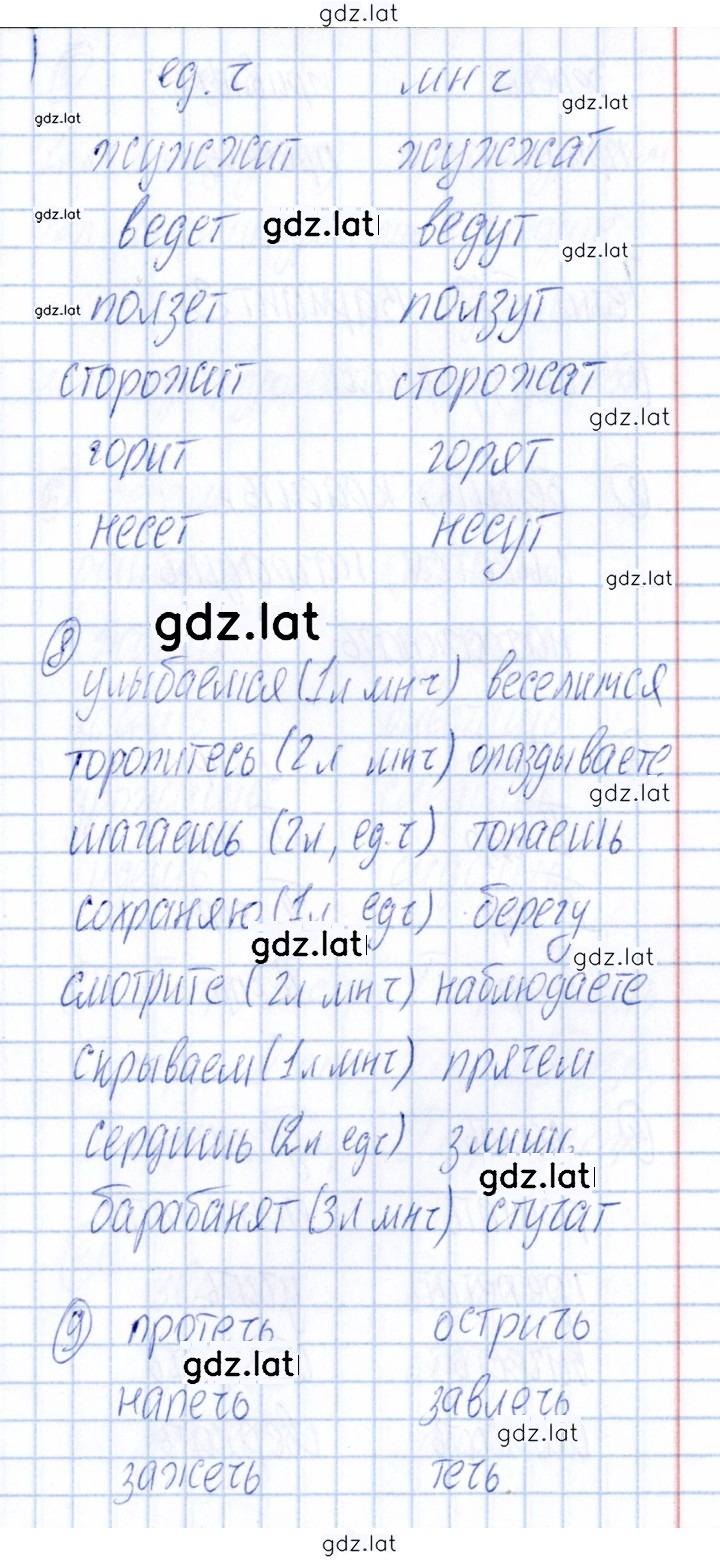 gdz.lat
ед. ч мн ч
gdz.lat
gdz.lat
жужжит жужжат
gdz.lat
ведет gdz.lat ведут
gdz.lat
gdz.lat ползет ползут
сторожит сторожат
gdz.lat
горит горят
несет несут
gdz.lat
gdz.lat
8
улыбаемся (1л мн ч) веселимся
торопитесь (2л мн ч) опаздываете
gdz.lat
шагаешь (2л, ед. ч) топаешь
сохраняю (1л, ед ч) берегу
gdz.lat
gdz.lat
смотрите (2л мн ч) наблюдаете
скрываем (1л мн ч) прячем
сердишь (2л ед ч) злишь
gdz.lat
барабанят (3л мн ч) стучат
9 протечь остричь
gdz.lat
напечь завлечь
gdz.lat
зажечь течь
gdz.lat